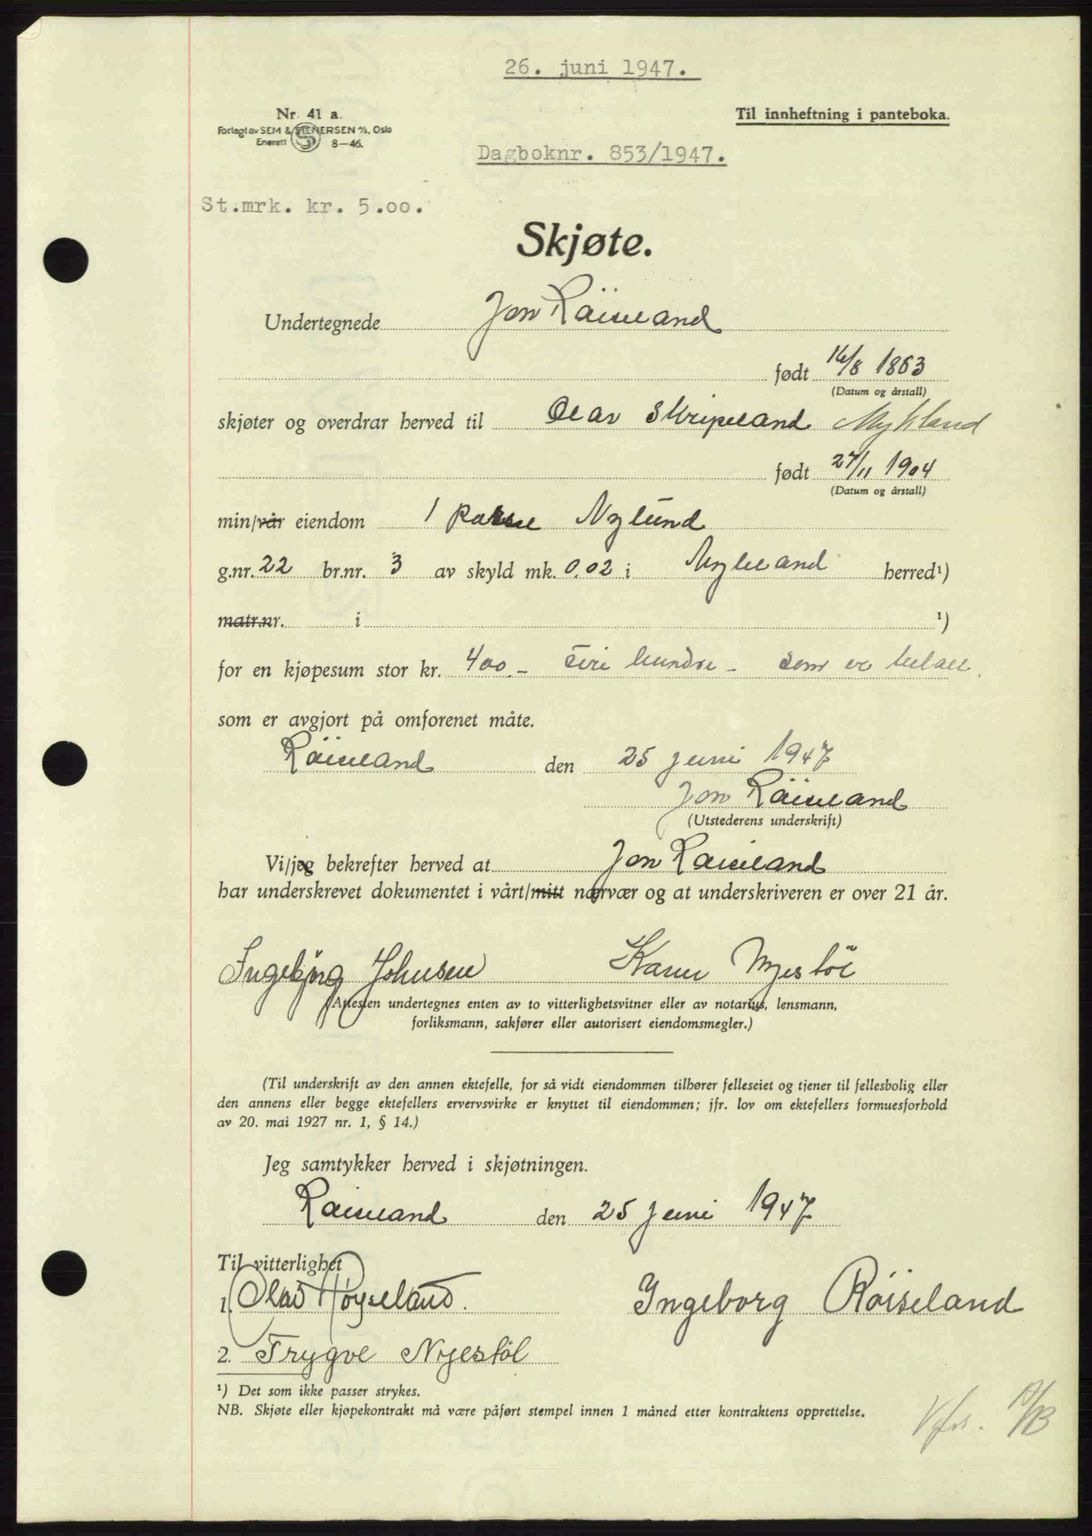 26. juni 1947.
Nr. 41 a.
Til innheftning i panteboka.
Forlagt av SEM & STENERSEN A/S, Oslo
Enerett 8—46.
Dagboknr. 853/1947.
St.mrk. kr. 5.oo.
Skjøte.
Undertegnede Jon Röiseland
født 16/8 1863
(Datum og årstall)
skjøter og overdrar herved til Olav Skripeland Mykland
født 27/11 1904
(Datum og årstall)
min/vår eiendom 1 Nylund
g.nr. 22 br.nr. 3 av skyld mk. 0.02 i Mykland herred¹)
matr.nr. i ¹)
for en kjøpesum stor kr. 400.- Firi hundre - som er betalt.
som er avgjort på omforenet måte.
Röiseland den 25 juni 1947
Jon Röiseland
(Utstederens underskrift)
Vi/jeg bekrefter herved at Jon Röiseland
har underskrevet dokumentet i vårt/mitt nærvær og at underskriveren er over 21 år.
Ingebjörg Johnsen Karen Nyestöl
(Attesten undertegnes enten av to vitterlighetsvitner eller av notarius, lensmann,
forliksmann, sakfører eller autorisert eiendomsmegler.)
(Til underskrift av den annen ektefelle, for så vidt eiendommen tilhører felleseiet og tjener til fellesbolig eller
den annens eller begge ektefellers ervervsvirke er knyttet til eiendommen; jfr. lov om ektefellers formuesforhold
av 20. mai 1927 nr. 1, § 14.)
Jeg samtykker herved i skjøtningen.
Röiseland den 25 juni 1947
Til vitterlighet
1. Olav Høyseland. Ingeborg Röiseland
2. Trygve Nyestöl
¹) Det som ikke passer strykes.
NB. Skjøte eller kjøpekontrakt må være påført stempel innen 1 måned etter kontraktens opprettelse.